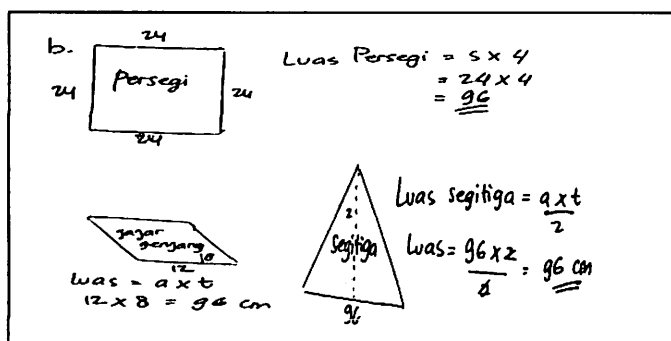 b.
24
24 Persegi 24
24
Luas Persegi = s x 4
= 24 x 4
= 96
jajar
genjang
8
12
Luas = a x t
12 x 8 = 96 cm
2
Segitiga
96
Luas segitiga = a x t
2
Luas = 96 x 2 = 96 cm
2